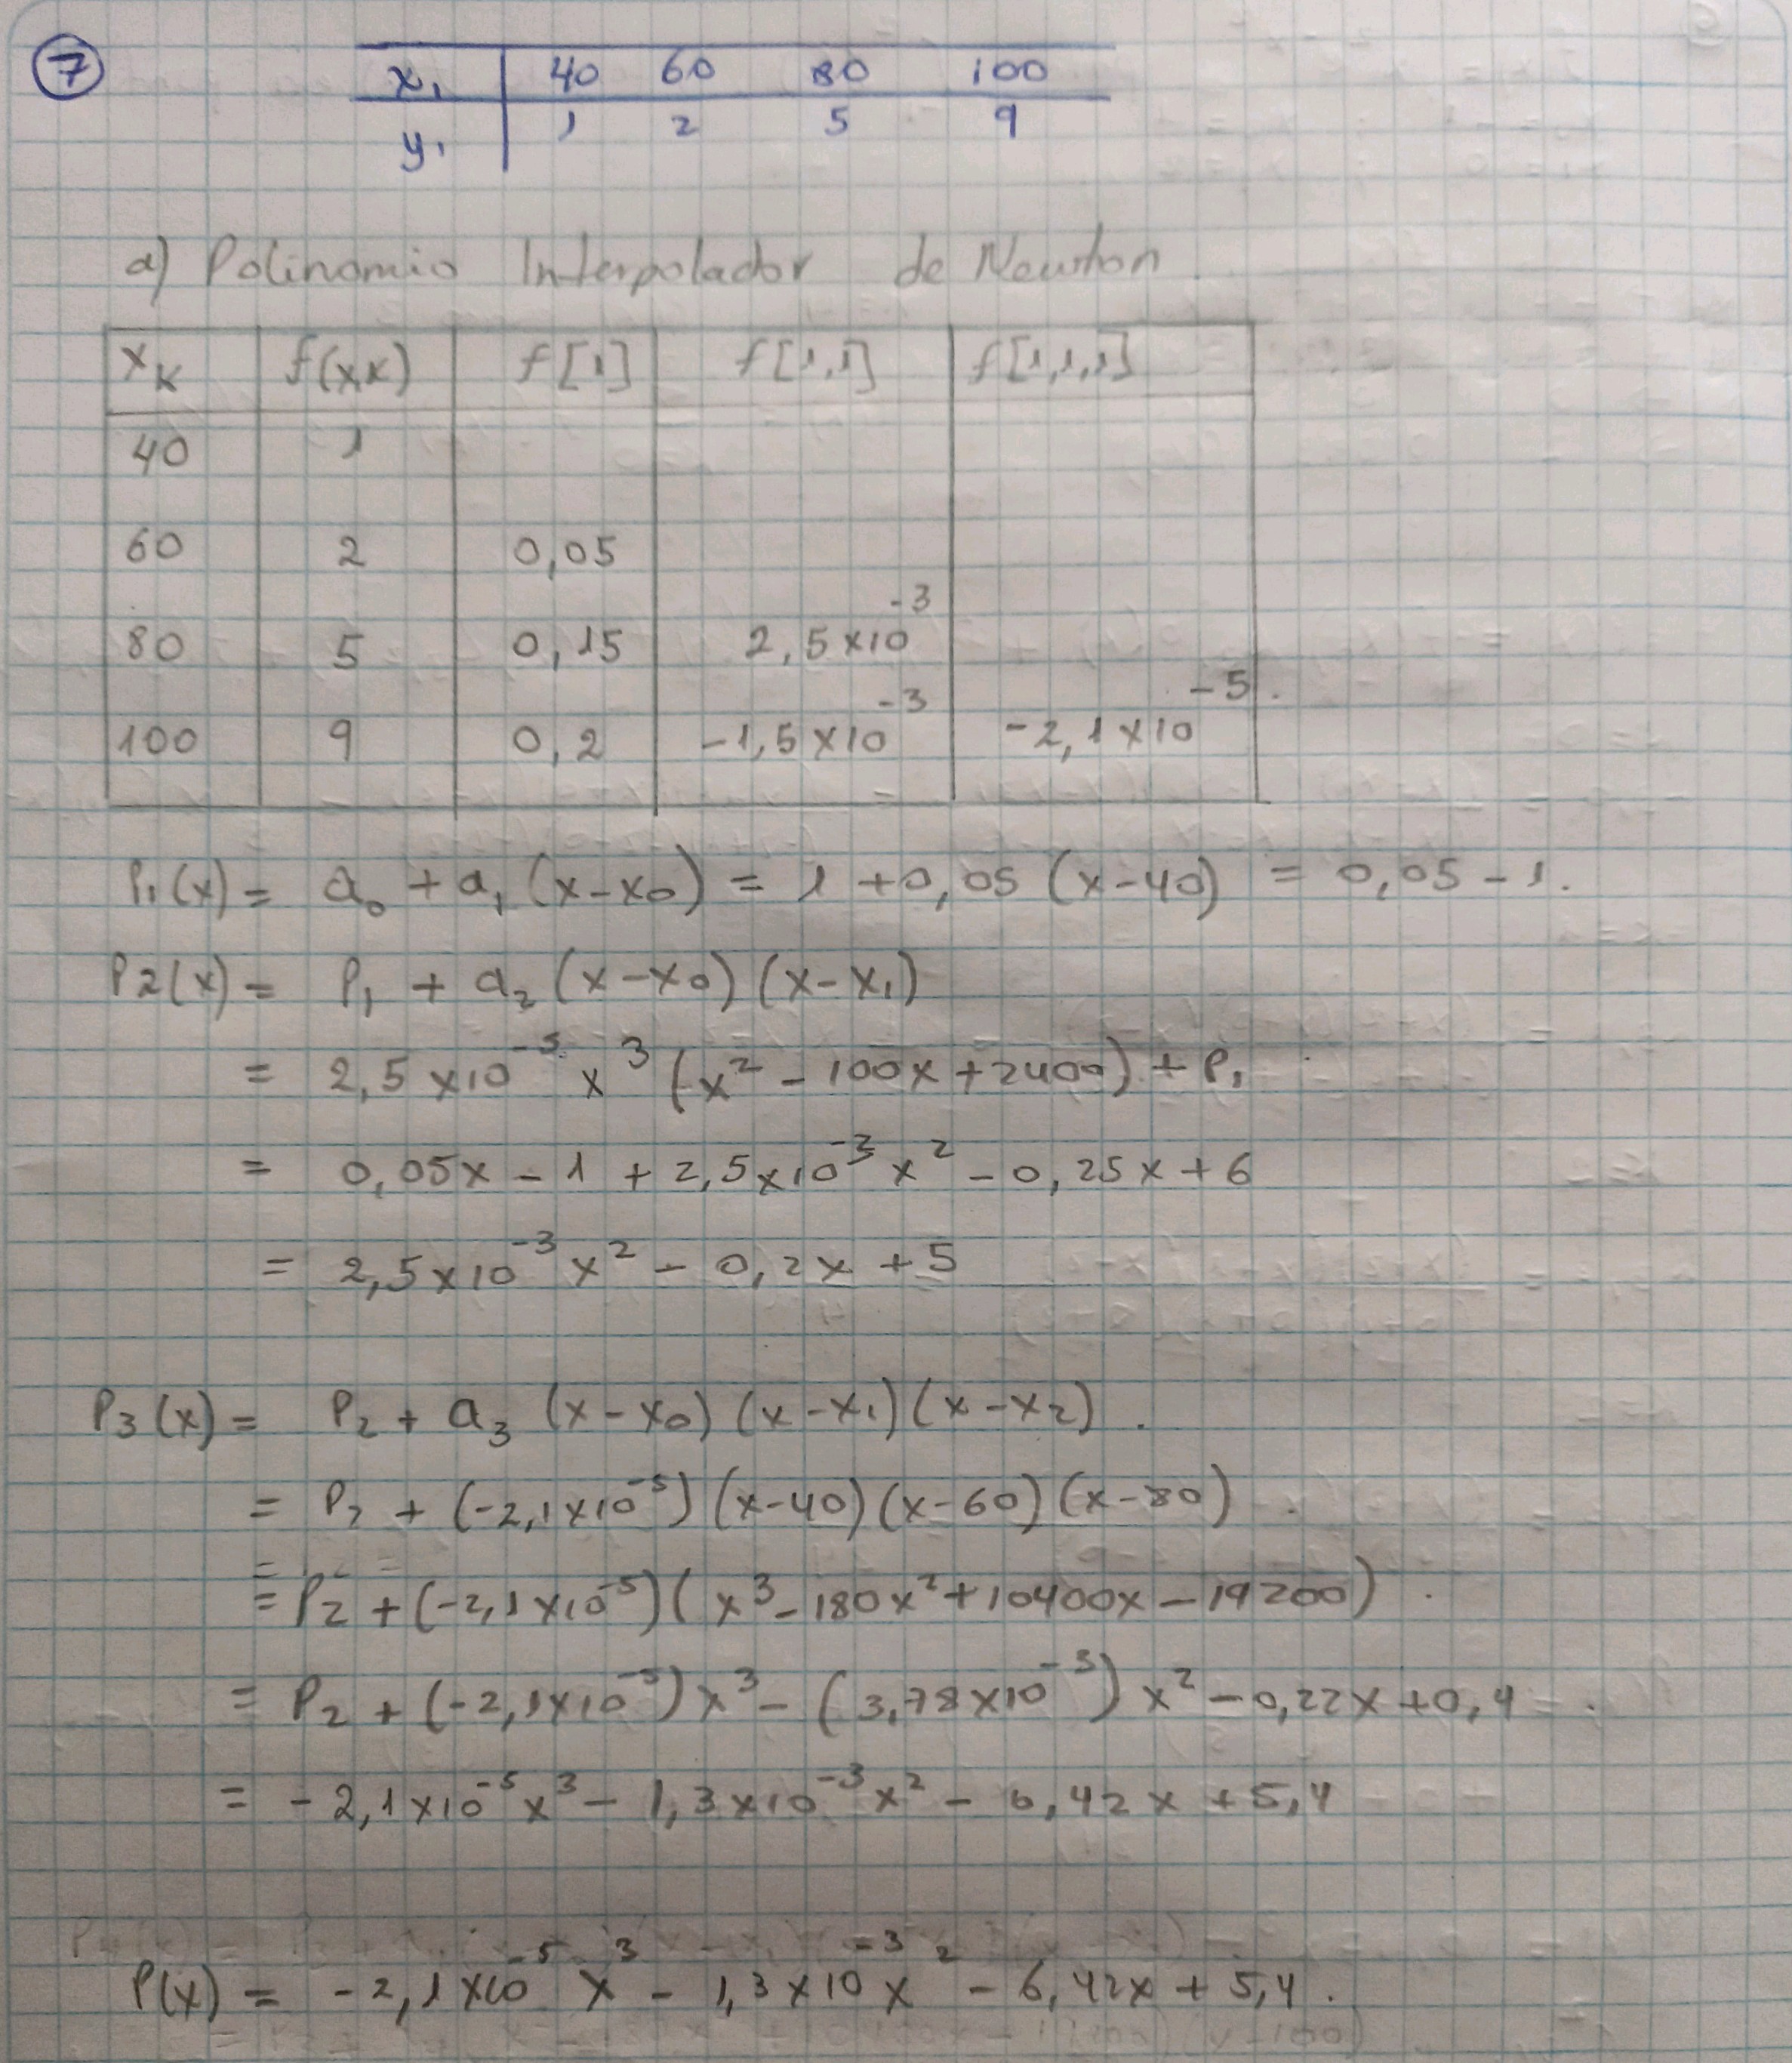 7
x₁ 40 60 80 100
y₁ 1 2 5 9
a) Polinomio Interpolador de Newton
xₖ f(xₖ) f[1] f[1,1] f[1,1,1]
40 1
60 2 0,05
80 5 0,15 2,5×10⁻³
100 9 0,2 -1,5×10⁻³ -2,1×10⁻⁵
P₁(x) = a₀ + a₁(x-x₀) = 1 + 0,05 (x-40) = 0,05 - 1.
P2(x) = P₁ + a₂ (x-x₀) (x-x₁)
= 2,5×10⁻³ x³ (x² - 100x + 2400) + P₁
= 0,05x - 1 + 2,5×10⁻³ x² - 0,25x + 6
= 2,5×10⁻³ x² - 0,2x + 5
P3(x) = P₂ + a₃ (x-x₀) (x-x₁) (x-x₂).
= P₂ + (-2,1×10⁻⁵) (x-40) (x-60) (x-80)
= P₂ + (-2,1×10⁻⁵) (x³ - 180x² + 10400x - 19200)
= P₂ + (-2,1×10⁻⁵) x³ - (3,78×10⁻³) x² - 0,22x + 0,4
= -2,1×10⁻⁵x³ - 1,3×10⁻³x² - 6,42x + 5,4
P(x) = -2,1×10⁻⁵ x³ - 1,3×10⁻³x² - 6,42x + 5,4.